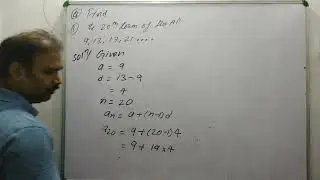 Q Find
① the 20th term of the AP.
9, 13, 17, 21 .....
Solⁿ/ Given
a = 9
d = 13 - 9
= 4
n = 20
an = a + (n-1)d
a20 = 9 + (20-1)4
= 9 + 19 × 4